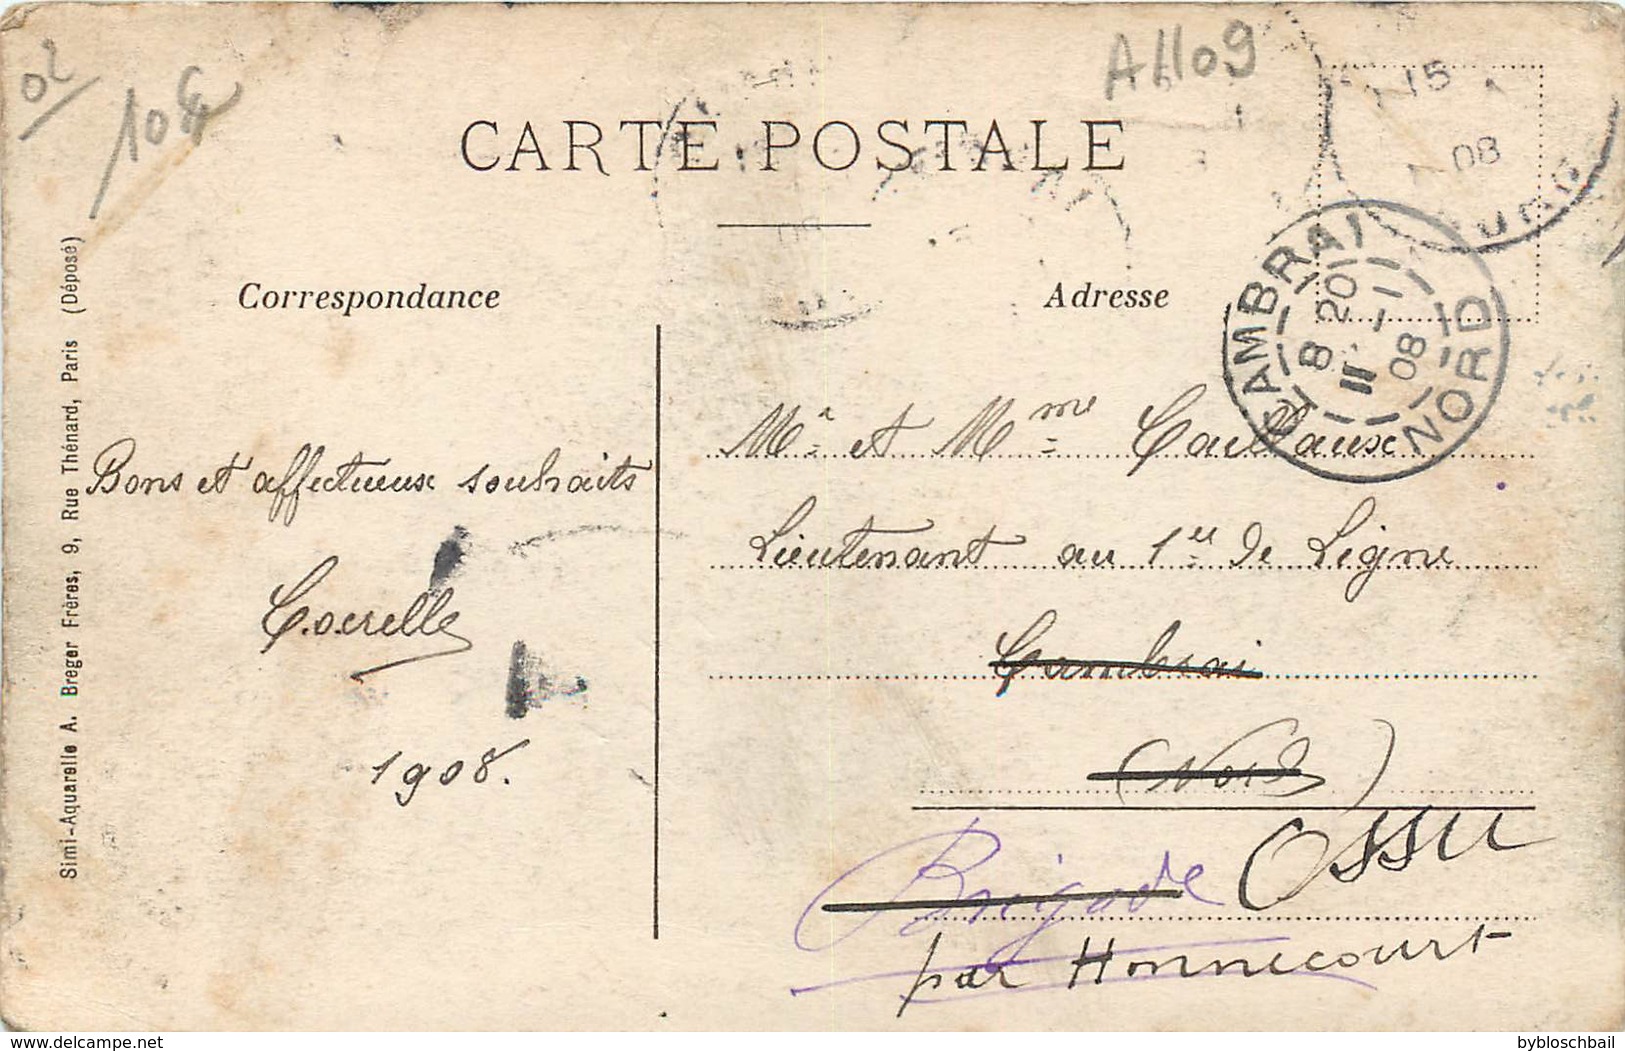 02
10€
A1109
CARTE POSTALE
Correspondance
Adresse
15
08
URG
CAMBRAI
8 20
11 - 1
08
NORD
Simi-Aquarelle A. Breger Frères, 9, Rue Thénard, Paris (Déposé)
Bons et affectueux souhaits
1908.
Mr et Mme Caillaux
Lieutenant au 1er de Ligne
Cambrai
(Nord)
Brigade Ossu
par Honnecourt
www.delcampe.net
bybloschbail